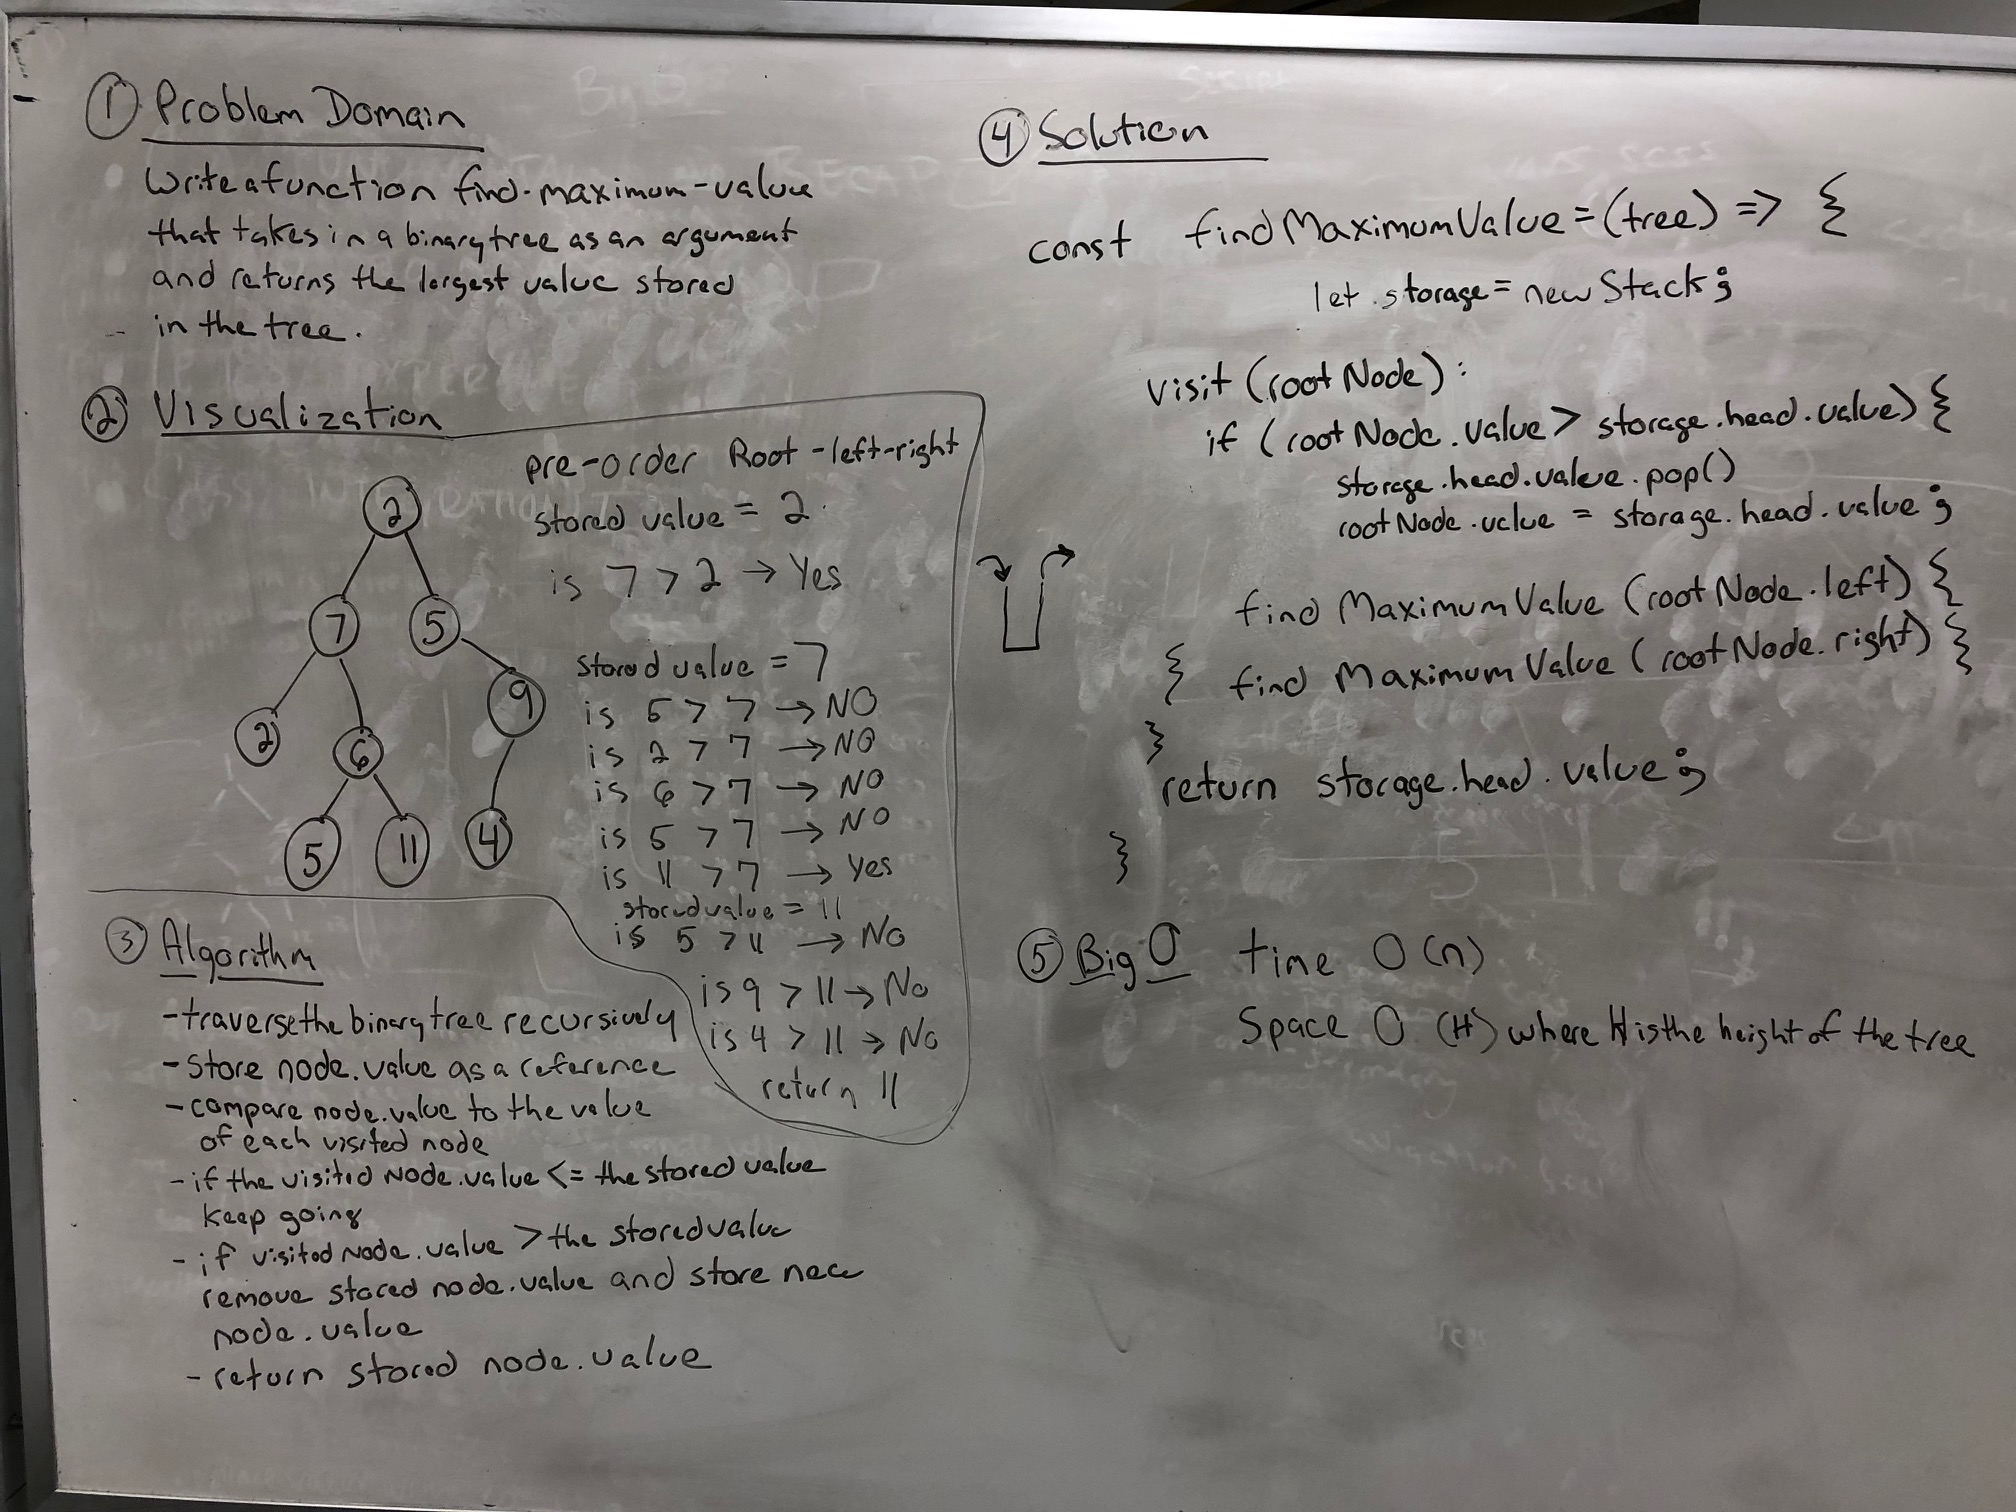 ① Problem Domain
Write a function find-maximum-value
that takes in a binary tree as an argument
and returns the largest value stored
in the tree.
② Visualization
pre-order Root-left-right
stored value = 2
is 7 > 2 → Yes
stored value = 7
is 5 > 7 → NO
is 2 > 7 → NO
is 6 > 7 → NO
is 5 > 7 → NO
is 11 > 7 → Yes
stored value = 11
is 5 > 11 → No
is 9 > 11 → No
is 4 > 11 → No
return 11
2
7 5
2 6 9
5 11 4
③ Algorithm
- traverse the binary tree recursively
- store node.value as a reference
- compare node.value to the value
of each visited node
- if the visited Node.value <= the stored value
keep going
- if visited Node.value > the stored value
remove stored node.value and store new
node.value
- return stored node.value
④ Solution
const findMaximumValue = (tree) => {
let storage = new Stack;
visit (rootNode):
if (rootNode.value > storage.head.value) {
storage.head.value.pop()
rootNode.value = storage.head.value;
find MaximumValue (rootNode.left) {
{ find MaximumValue (rootNode.right) {
}
return storage.head.value;
}
⑤ Big O time O(n)
Space O (H) where H is the height of the tree